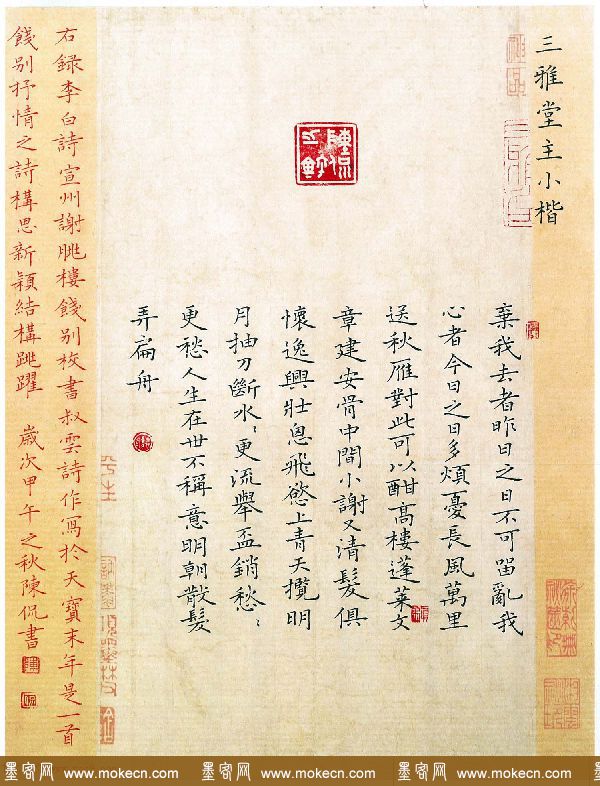 三雅堂主小楷
棄我去者昨日之日不可留亂我
心者今日之日多煩憂長風萬里
送秋雁對此可以酣高樓蓬萊文
章建安骨中間小謝又清髮俱
懷逸興壯思飛慾上青天攬明
月抽刀斷水〻更流舉盃銷愁〻
更愁人生在世不稱意明朝散髮
弄扁舟
右録李白詩宣州謝朓樓餞别校書叔雲詩作寫於天寶末年是一首
餞别抒情之詩構思新穎結構跳躍 歲次甲午之秋陳侃書
墨客网 www.mokecn.com 墨客网 www.mokecn.com 墨客网 www.mokecn.com